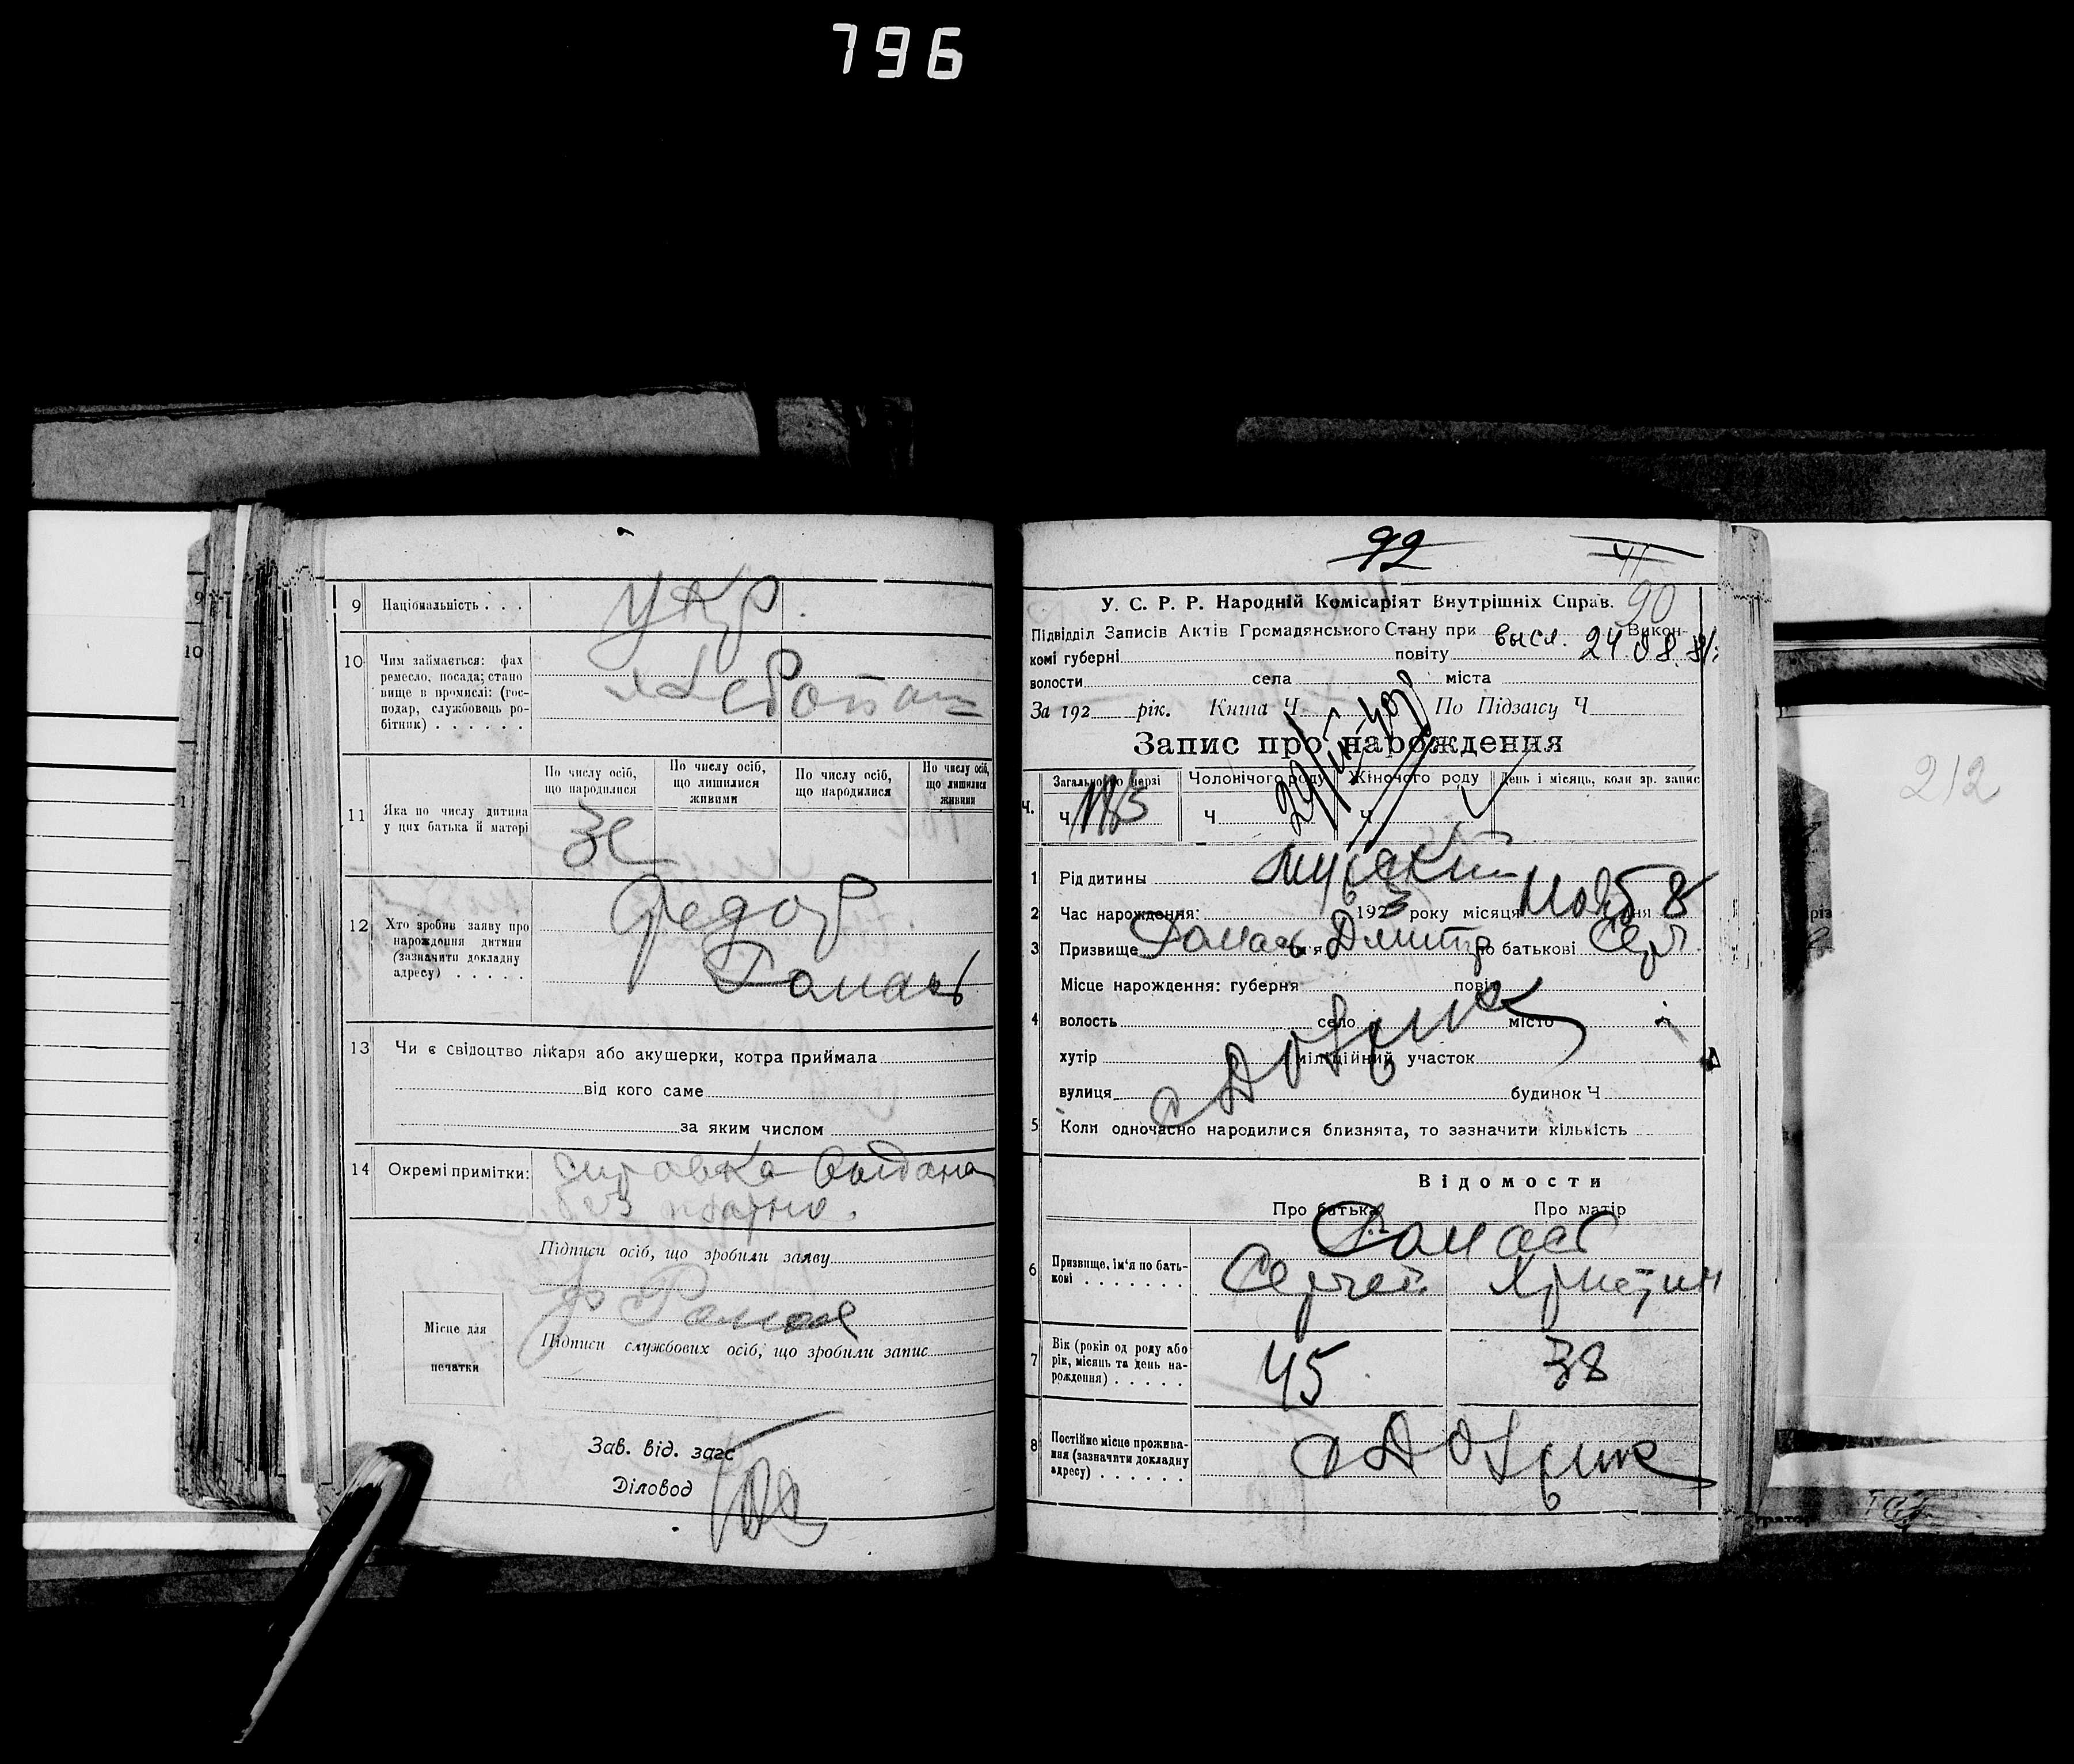 796
9 Націбнальність . . . укр.
10 Чим займається: фах
ремесло, посада; стано
вище в промислі: (гос-
подар, службовець ро-
бітник) . . . . . . хлебопаш
11 Яка по числу дитина
у цих батька й матері
По числу осіб,
що народилися
По числу осіб,
що лишилися
живими
По числу осіб,
що народилися
По числу осіб,
що лишилися
живими
3е
12 Хто зробив заяву про
народження дитини
(зазначити докладну
адресу) . . . . .
Федор
13 Чи є свідоцтво лікаря або акушерки, котра приймала
від кого саме
за яким числом
14 Окремі примітки: справка выдана
без платно.
Підписи осіб, що зробили заяву
Місце для
печатки
Підписи службових осіб, що зробили запис
Зав. від. загс
Діловод
92
41
90
У. С. Р. Р. Народній Комісаріят Внутрішніх Справ.
Підвідділ Записів Актів Громадянського Стану при Викон-
высл. 24 08 81
комі губерні повіту
волости села міста
За 192 рік. Книга Ч. По Підзаісу Ч
Запис про нарождення
Ч.
Загального черзі
Ч
Чоловічого роду
Ч
Жіночого роду
Ч
День і місяць, коли зр. запис
1 Рід дитини мужскій
2 Час нарождення: 1923 року місяця Нояб дня 8
3 Призвище ім'я Дмитр по батькові Серг
Місце нарождення: губерня повіт
4 волость село місто
хутір міліційний участок
вулиця будинок Ч
5 Коли одночасно народилися близнята, то зазначити кількість
Відомости
Про батька Про матір
6 Призвище, ім'я по бать-
кові . . . . . . .
Сергей Христин
7 Вік (років од роду або
рік, місяць та день на-
рождення) . . . . .
45 38
8 Постійне місце прожива-
ння (зазначити докладну
адресу) . . . . . . .
212